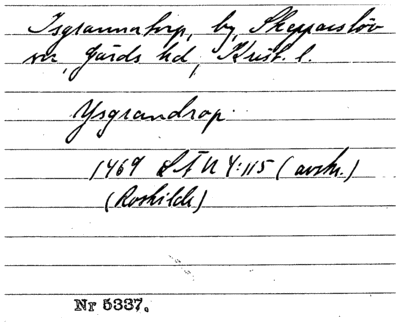 Isgrannatorp, by, Skepparslöv
sn, Gärds hd, Krist. l.
Ysgrandrop
1469 LÄU 4:115 (avskr.)
(Roskilde)
Nr 5337.